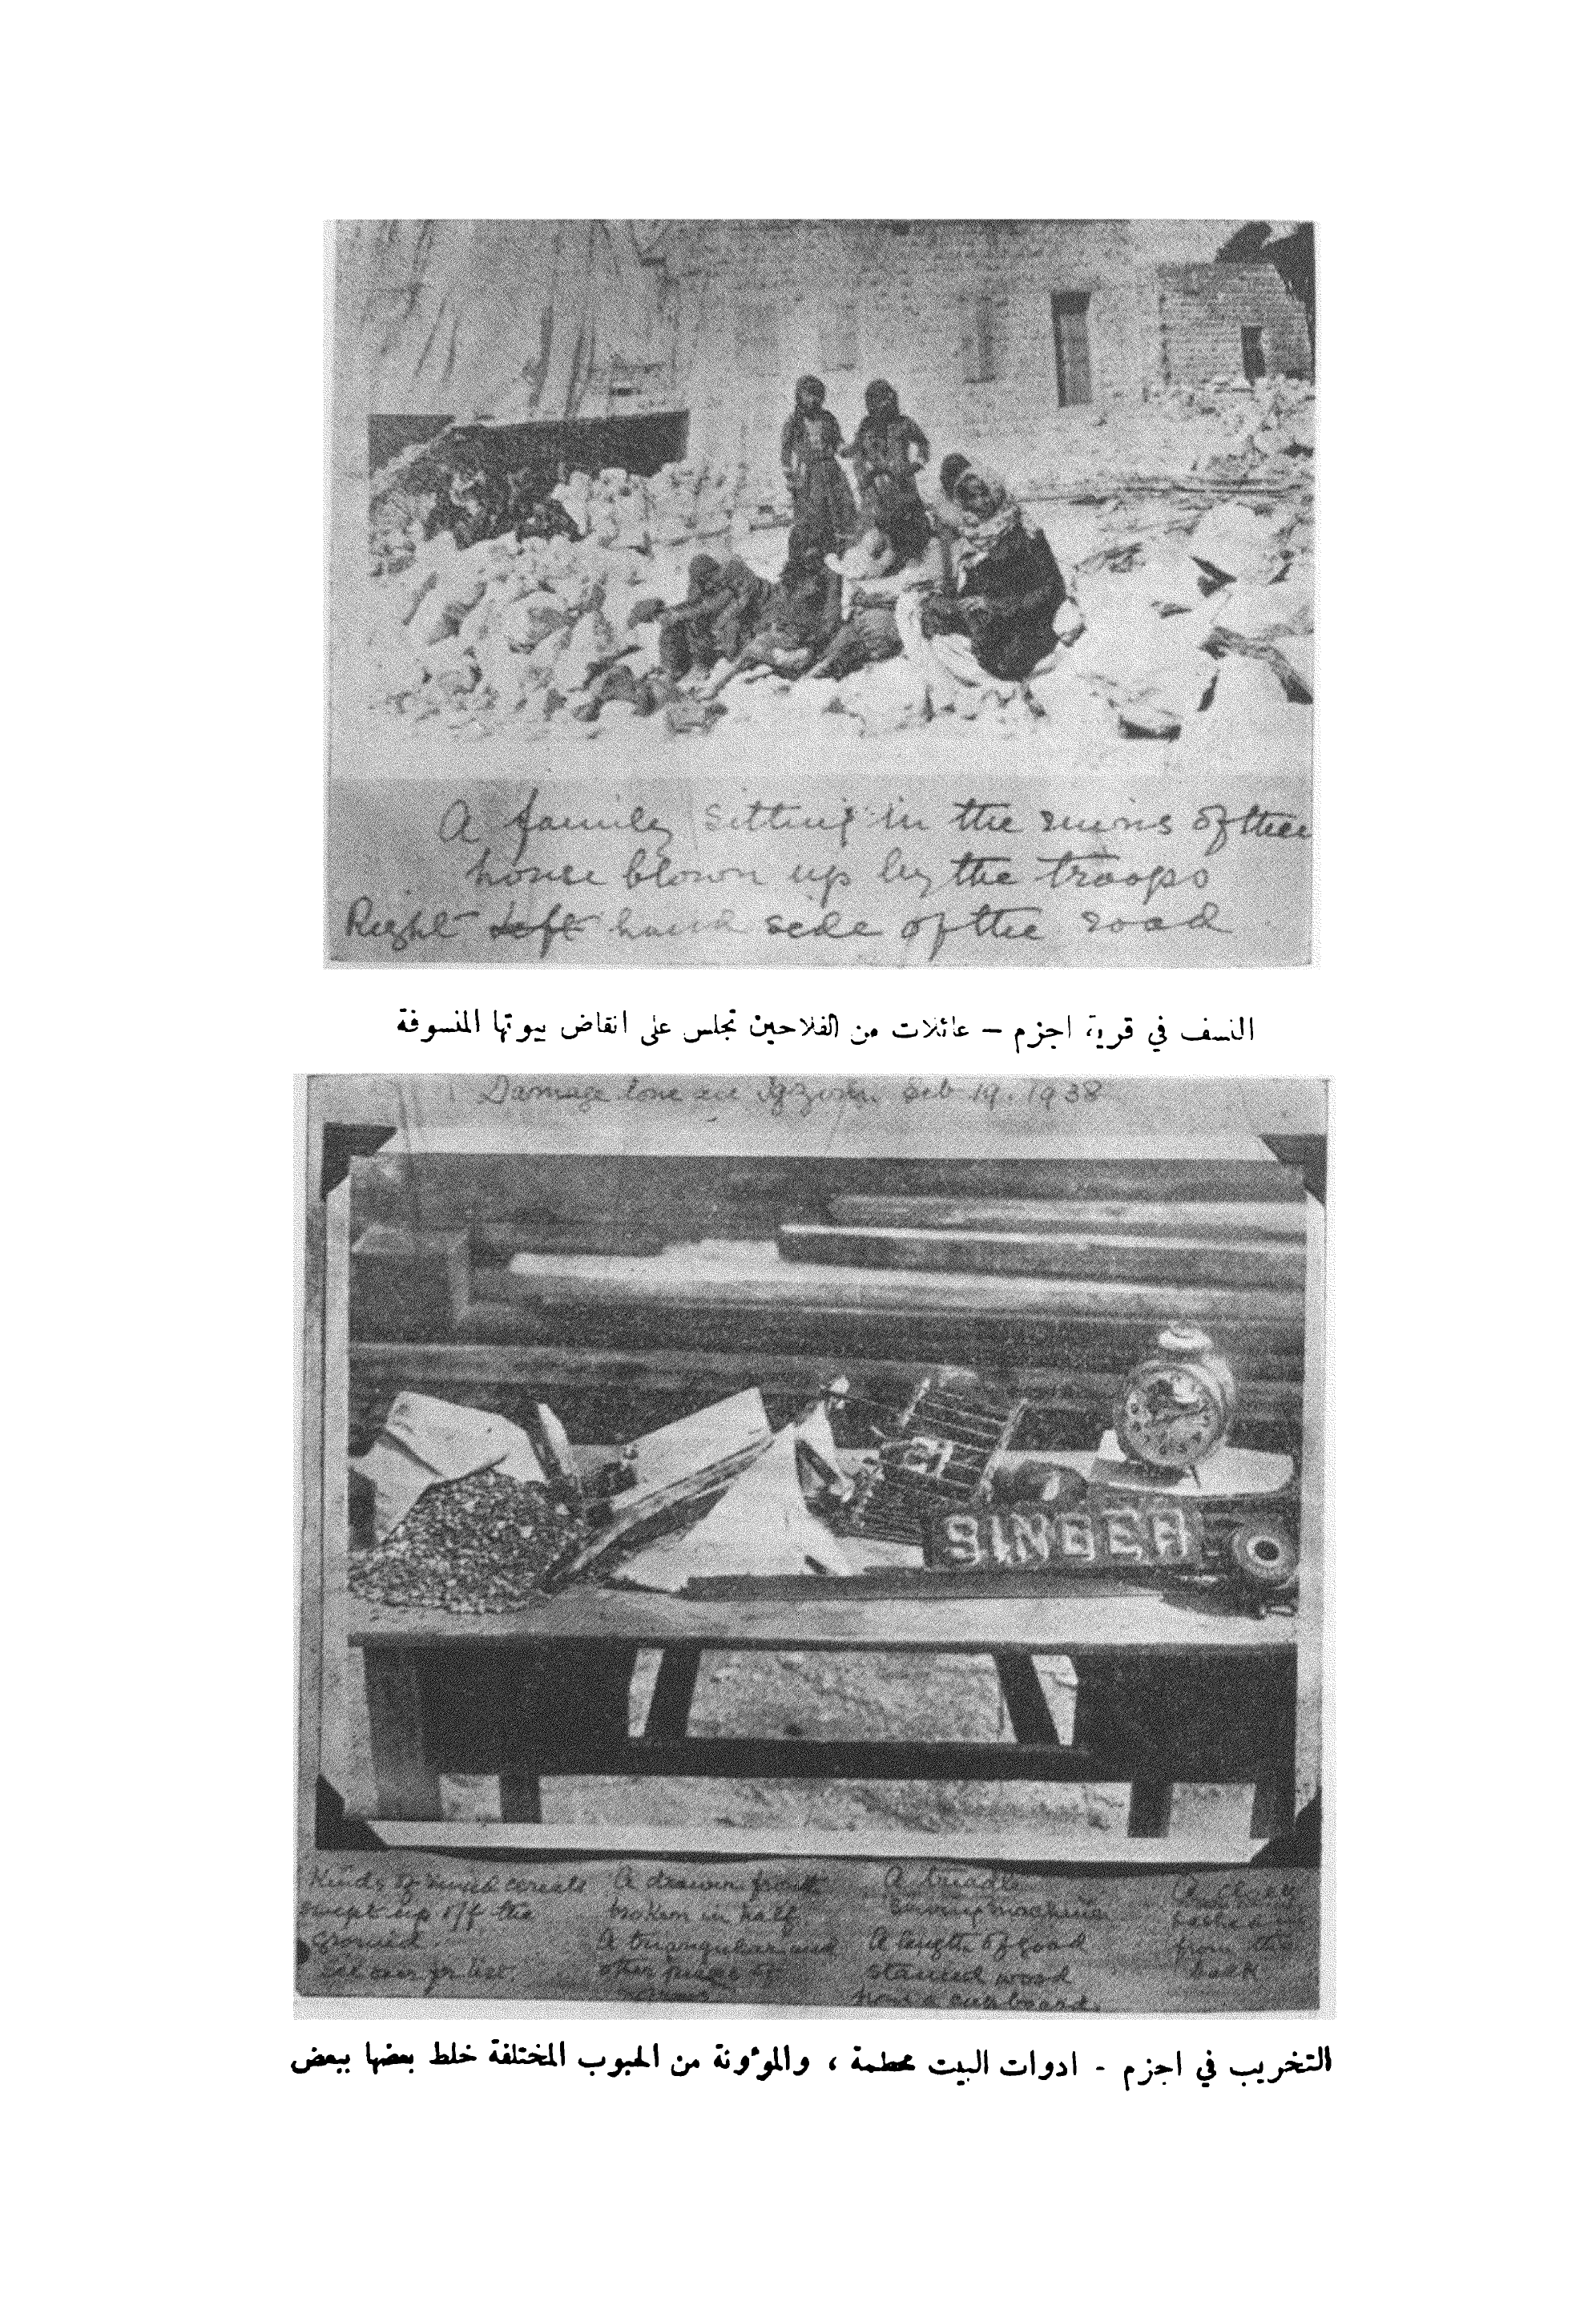 A family sitting in the ruins of their
house blown up by the troops
Right Left hand side of the road
النسف في قرية اجزم — عائلات من الفلاحين تجلس على انقاض بيوتها المنسوفة
Damage done in Igzim. Feb 19. 1938
SINGER
Kinds of mixed cereals
swept up off the
ground.
A drawer front
broken in half.
A triangular and
other piece of
A treadle
Sewing machine
A length of good
stained wood
from a cupboard.
A clock
bashed in
from the
back
التخريب في اجزم - ادوات البيت محطمة ، والموؤنة من الحبوب المختلفة خلط بعضها ببعض